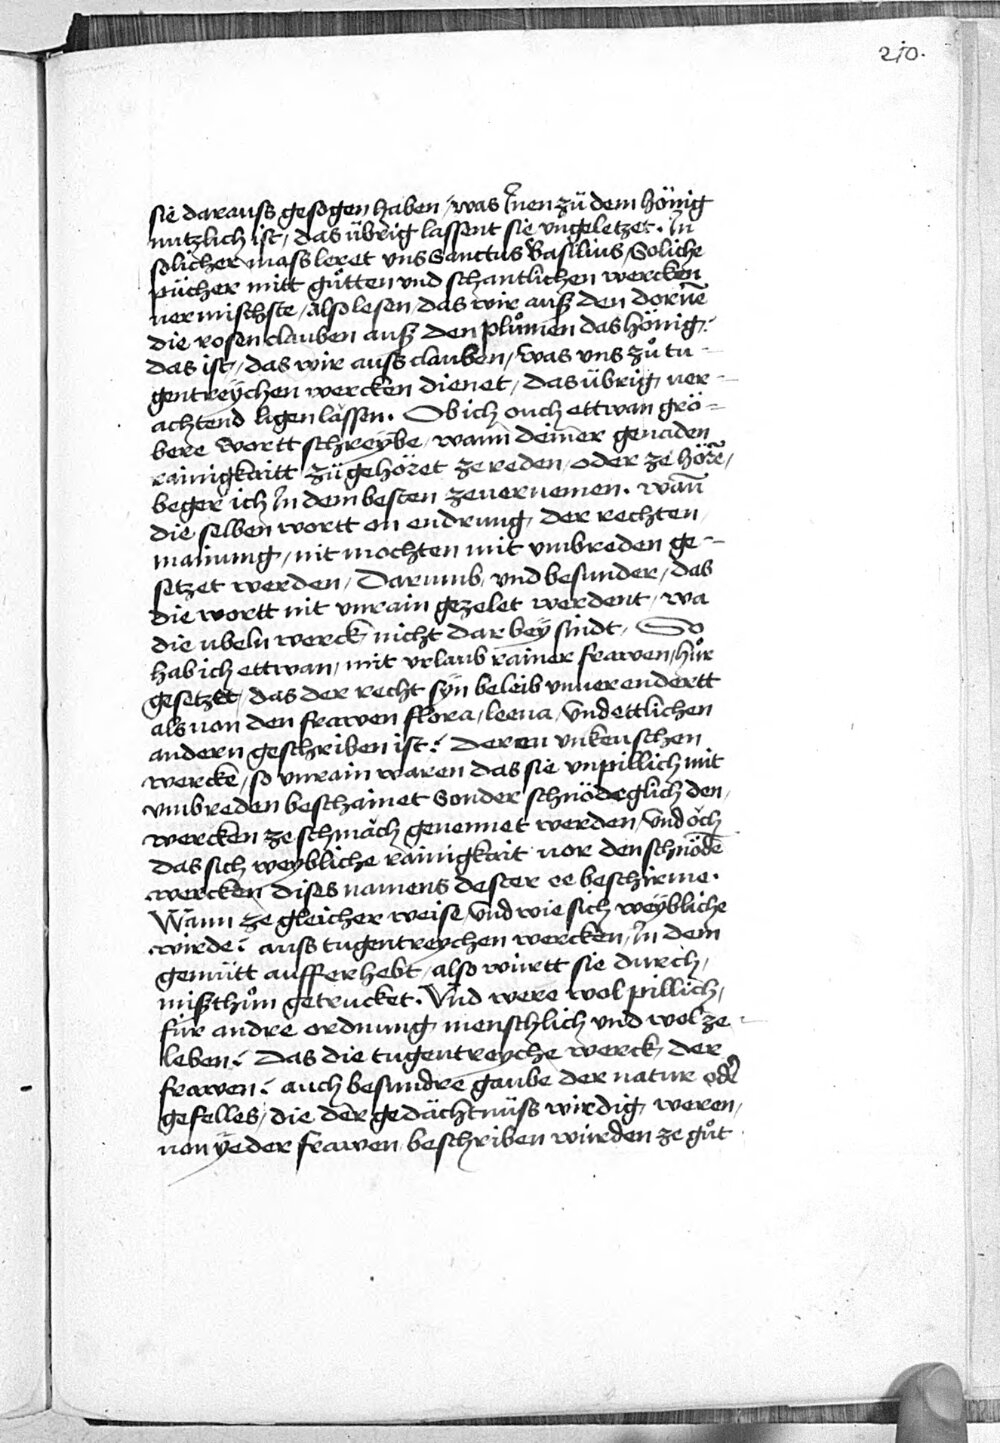 210.
sie darauss gesogen haben / was Jnen zü dem hönig
nutzlich ist / das übrig lassent sie ungeletzet. Jn
solicher mass leret uns Sanctus Basilius / Soliche
pücher mitt gůtten und schantlichen wercken
vermischste / also lesen / das wir auß den dorne̅
die rosen clauben auß den plůmen das hönig /
das ist / das wir auss clauben / was uns zů tu-
gentreÿchen wercken dienet / das übrig ver-
achtend ligen lässen. Ob ich ouch ettwan grö-
bere wortt schreÿbe / wann deiner genaden
rainigkaitt zügehöret ze reden / oder ze höre̅ /
beger ich Jn dem besten ze vernemen. wan̅
die selben wortt on endrung der rechten
mainung / nit mochten mit umbreden ge-
setzet werden / Darumb und besunder / das
die wortt nit unrain gezelet werdent / wa
die ubeln werck nicht dar beÿ sindt / So
hab ich ettwan / mit urlaub rainer frawen / hůr
gesetzet / das der recht sÿn beleib unverendertt
als von den frawen flora / leena / und ettlichen
andern geschriben ist / Deren unkeuschen
wercke / so unrain waren das sie unpillich mit
umbreden beschainet Sonder schnödeglich den
wercken ze schmäch genennet werden / Und öch
das sich weybliche rainigkait vor den schnöde̅
wercken dises namens dester ee beschirme.
Wann ze gleicher weise / und wie sich weÿbliche
wirde / auss tugentreychen wercken / Jn dem
gemütt aufferhebt / also wirtt sie durch /
mißthům getrucket. Und were wol pillich /
für andre ordnung menschlich und wol ze
leben / Das die tugentreyche werck der
frawen / auch besundre gaube der natur oder
gefelles / die der gedächtnüss wirdig weren /
von ÿeder frawen beschriben wurden ze gůt